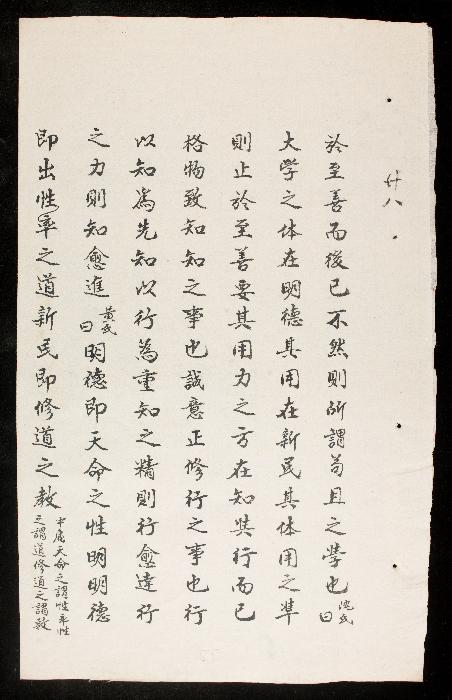 廿八
於至善而後已不然則所謂苟且之學也沈氏曰
大学之体在明德其用在新民其体用之準
則止於至善要其用力之方在知與行而已
格物致知知之事也誠意正修行之事也行
以知為先知以行為重知之精則行愈達行
之力則知愈進黄氏曰明德即天命之性明明德
即出性率之道新民即修道之教中庸天命之謂性率性
之謂道修道之謂教